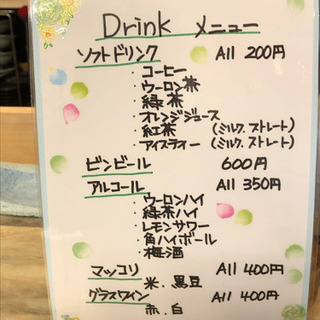 Drink メニュー
ソフトドリンク All 200円
・コーヒー
・ウーロン茶
・緑茶
・オレンジジュース
・紅茶 (ミルク.ストレート)
・アイスティー (ミルク.ストレート)
ビンビール 600円
アルコール All 350円
・ウーロンハイ
・緑茶ハイ
・レモンサワー
・角ハイボール
・梅酒
マッコリ All 400円
米.黒豆
グラスワイン All 400円
赤.白